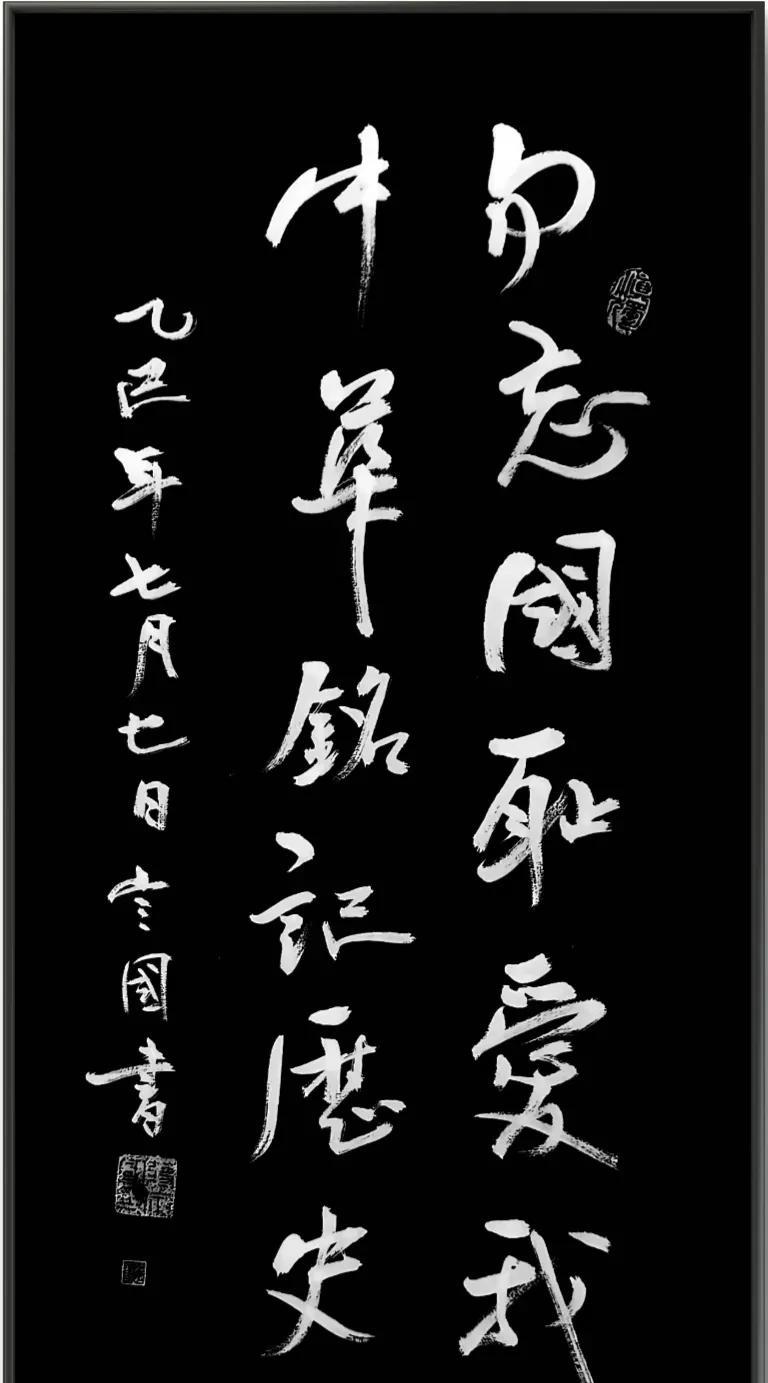 勿忘國耻愛我
中華銘記歷史
乙巳年七月七日
國書